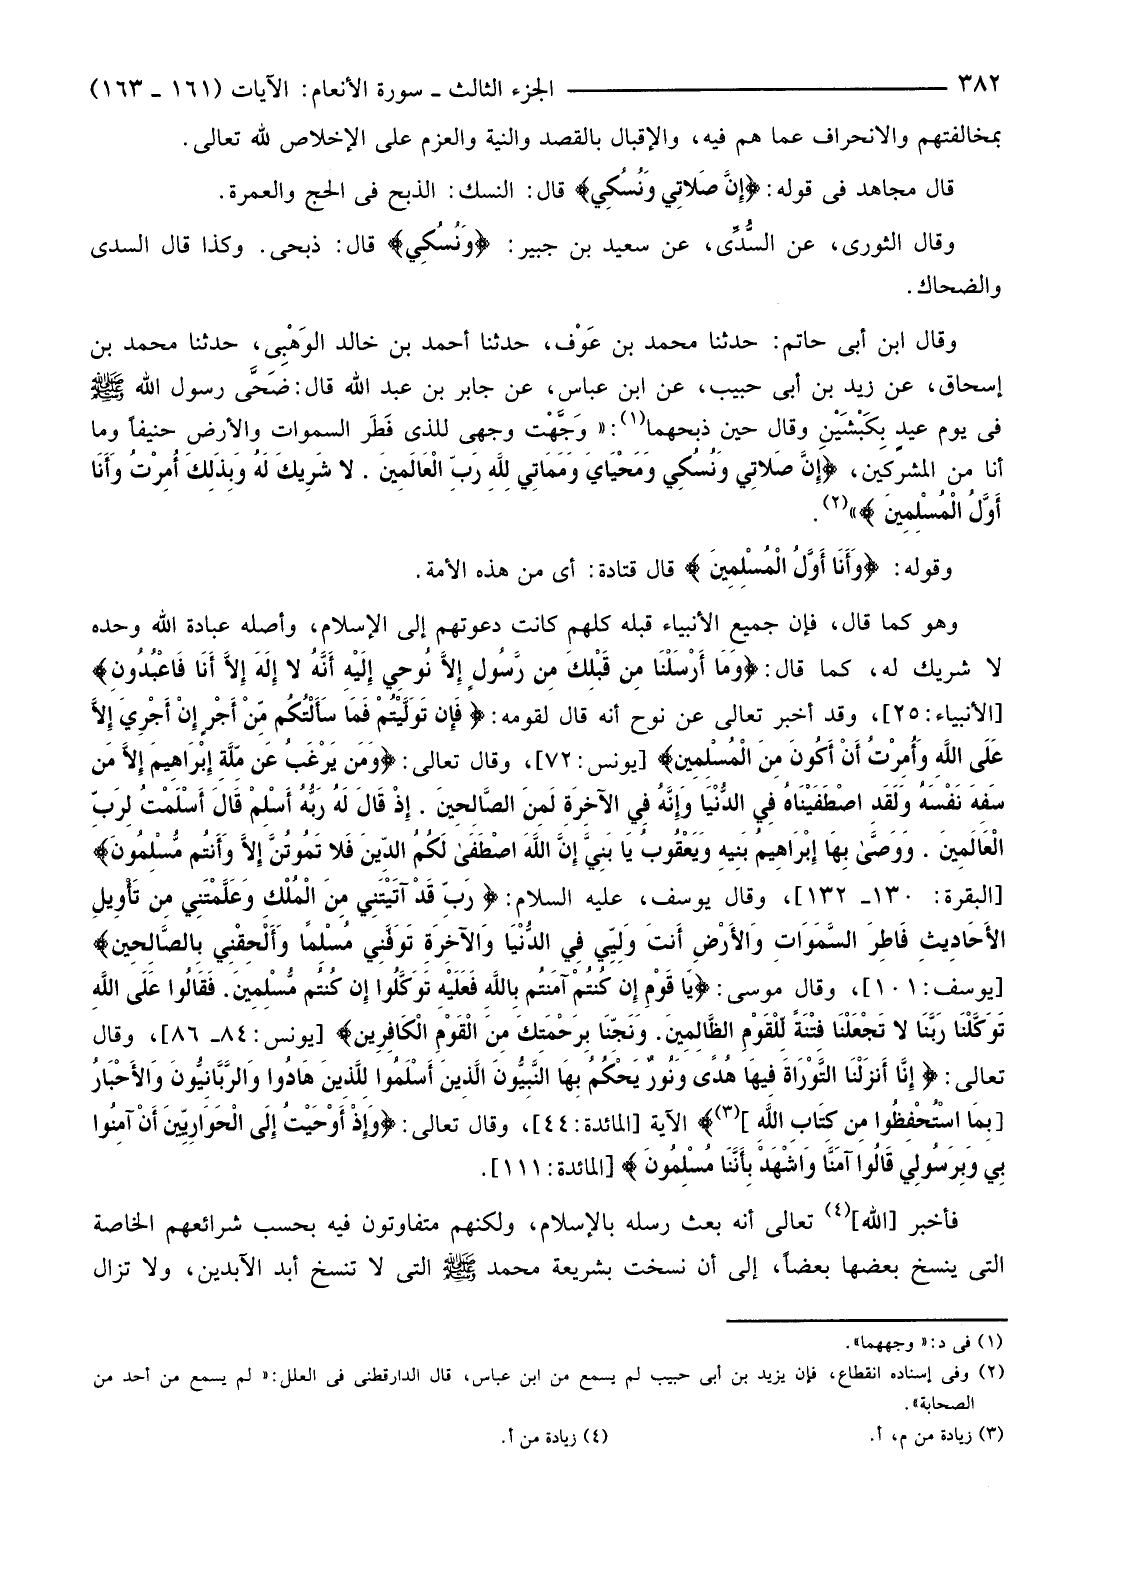 ٣٨٢ ــــــ الجزء الثالث ـ سورة الأنعام: الآيات (١٦١ ـ ١٦٣)
بمخالفتهم والانحراف عما هم فيه، والإقبال بالقصد والنية والعزم على الإخلاص لله تعالى.
قال مجاهد فى قوله: ﴿إِنَّ صَلاتِي وَنُسُكِي﴾ قال: النسك: الذبح فى الحج والعمرة.
وقال الثورى، عن السُّدِّى، عن سعيد بن جبير: ﴿وَنُسُكِي﴾ قال: ذبحى. وكذا قال السدى
والضحاك.
وقال ابن أبى حاتم: حدثنا محمد بن عَوْف، حدثنا أحمد بن خالد الوَهْبِى، حدثنا محمد بن
إسحاق، عن زيد بن أبى حبيب، عن ابن عباس، عن جابر بن عبد الله قال: ضَحَّى رسول الله ﷺ
فى يوم عيدٍ بِكَبْشَيْنِ وقال حين ذبحهما(١):« وَجَّهْت وجهى للذى فَطَر السموات والأرض حنيفاً وما
أنا من المشركين، ﴿إِنَّ صَلاتِي وَنُسُكِي وَمَحْيَايَ وَمَمَاتِي لِلَّهِ رَبِّ الْعَالَمِينَ . لا شَرِيكَ لَهُ وَبِذَلِكَ أُمِرْتُ وَأَنَا
أَوَّلُ الْمُسْلِمِينَ ﴾»(٢).
وقوله: ﴿وَأَنَا أَوَّلُ الْمُسْلِمِينَ ﴾ قال قتادة: أى من هذه الأمة.
وهو كما قال، فإن جميع الأنبياء قبله كلهم كانت دعوتهم إلى الإسلام، وأصله عبادة الله وحده
لا شريك له، كما قال: ﴿وَمَا أَرْسَلْنَا مِن قَبْلِكَ مِن رَّسُولٍ إِلاَّ نُوحِي إِلَيْهِ أَنَّهُ لا إِلَهَ إِلاَّ أَنَا فَاعْبُدُونِ﴾
[الأنبياء:٢٥]، وقد أخبر تعالى عن نوح أنه قال لقومه: ﴿ فَإِن تَوَلَّيْتُمْ فَمَا سَأَلْتُكُم مِّنْ أَجْرٍ إِنْ أَجْرِيَ إِلاَّ
عَلَى اللَّهِ وَأُمِرْتُ أَنْ أَكُونَ مِنَ الْمُسْلِمِينَ﴾ [يونس:٧٢]، وقال تعالى: ﴿وَمَن يَرْغَبُ عَن مِّلَّةِ إِبْرَاهِيمَ إِلاَّ مَن
سَفِهَ نَفْسَهُ وَلَقَدِ اصْطَفَيْنَاهُ فِي الدُّنْيَا وَإِنَّهُ فِي الآخِرَةِ لَمِنَ الصَّالِحِينَ . إِذْ قَالَ لَهُ رَبُّهُ أَسْلِمْ قَالَ أَسْلَمْتُ لِرَبِّ
الْعَالَمِينَ . وَوَصَّىٰ بِهَا إِبْرَاهِيمُ بَنِيهِ وَيَعْقُوبُ يَا بَنِيَّ إِنَّ اللَّهَ اصْطَفَىٰ لَكُمُ الدِّينَ فَلا تَمُوتُنَّ إِلاَّ وَأَنتُم مُّسْلِمُونَ﴾
[البقرة: ١٣٠ـ ١٣٢]، وقال يوسف، عليه السلام: ﴿ رَبِّ قَدْ آتَيْتَنِي مِنَ الْمُلْكِ وَعَلَّمْتَنِي مِن تَأْوِيلِ
الأَحَادِيثِ فَاطِرَ السَّمَوَاتِ وَالأَرْضِ أَنتَ وَلِيِّي فِي الدُّنْيَا وَالآخِرَةِ تَوَفَّنِي مُسْلِمًا وَأَلْحِقْنِي بِالصَّالِحِينَ﴾
[يوسف:١٠١]، وقال موسى: ﴿يَا قَوْمِ إِن كُنتُمْ آمَنتُم بِاللَّهِ فَعَلَيْهِ تَوَكَّلُوا إِن كُنتُم مُّسْلِمِينَ. فَقَالُوا عَلَى اللَّهِ
تَوَكَّلْنَا رَبَّنَا لا تَجْعَلْنَا فِتْنَةً لِّلْقَوْمِ الظَّالِمِينَ. وَنَجِّنَا بِرَحْمَتِكَ مِنَ الْقَوْمِ الْكَافِرِينَ﴾ [يونس:٨٤ـ ٨٦]، وقال
تعالى: ﴿ إِنَّا أَنزَلْنَا التَّوْرَاةَ فِيهَا هُدًى وَنُورٌ يَحْكُمُ بِهَا النَّبِيُّونَ الَّذِينَ أَسْلَمُوا لِلَّذِينَ هَادُوا وَالرَّبَّانِيُّونَ وَالأَحْبَارُ
[بِمَا اسْتُحْفِظُوا مِن كِتَابِ اللَّهِ ](٣)﴾ الآية [المائدة:٤٤]، وقال تعالى: ﴿وَإِذْ أَوْحَيْتُ إِلَى الْحَوَارِيِّينَ أَنْ آمِنُوا
بِي وَبِرَسُولِي قَالُوا آمَنَّا وَاشْهَدْ بِأَنَّنَا مُسْلِمُونَ ﴾ [المائدة:١١١].
فأخبر [الله](٤) تعالى أنه بعث رسله بالإسلام، ولكنهم متفاوتون فيه بحسب شرائعهم الخاصة
التى ينسخ بعضها بعضاً، إلى أن نسخت بشريعة محمد ﷺ التى لا تنسخ أبد الآبدين، ولا تزال
(١) فى د:« وجههما».
(٢) وفى إسناده انقطاع، فإن يزيد بن أبى حبيب لم يسمع من ابن عباس، قال الدارقطنى فى العلل:« لم يسمع من أحد من
الصحابة».
(٣) زيادة من م، أ. (٤) زيادة من أ.